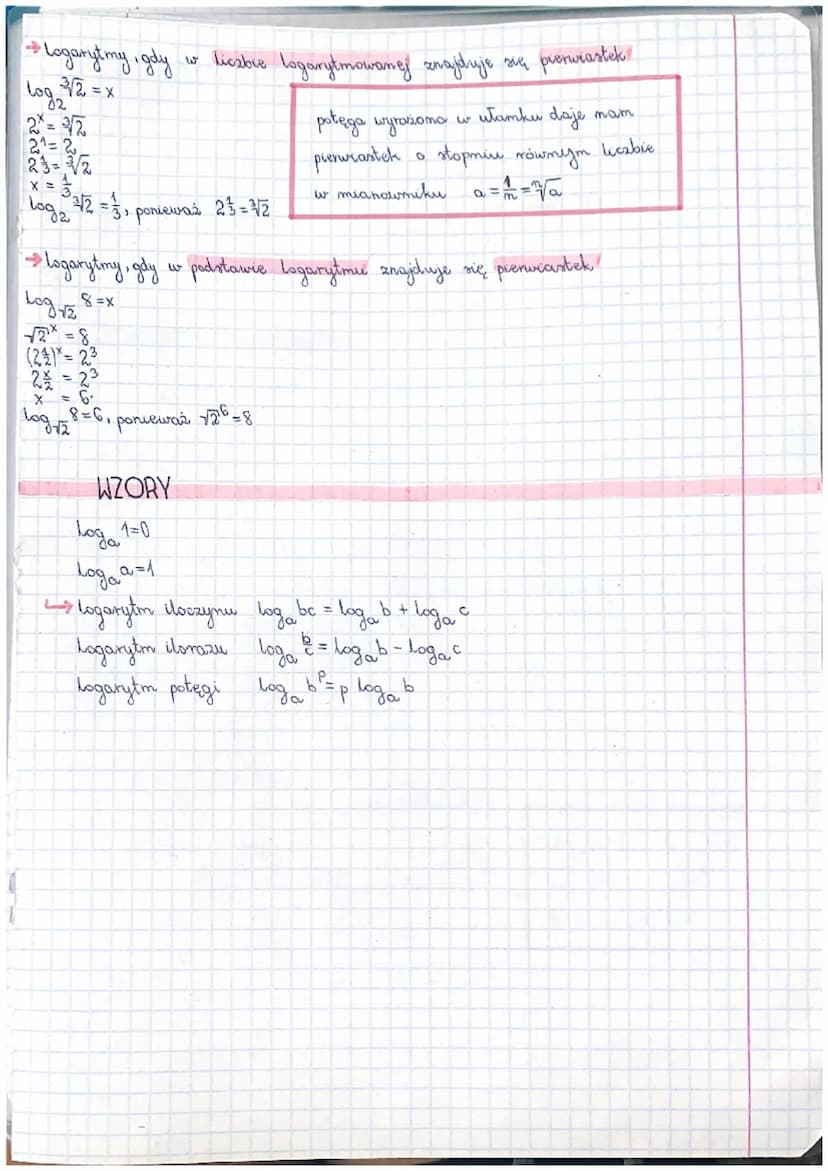 → Logarytmy, gdy w liczbie logarytmowanej znajduje się pierwiastek!
log₂ ∛2 = x
2ˣ = ∛2
2¹ = 2
2^⅓ = ∛2
x = ⅓
log₂ ∛2 = ⅓, ponieważ 2^⅓ = ∛2
potęga wyrażona w ułamku daje nam
pierwiastek o stopniu równym liczbie
w mianowniku a = 1/n = ⁿ√a
→ Logarytmy, gdy w podstawie logarytmu znajduje się pierwiastek!
log_√2 8 = x
√2ˣ = 8
(2^½)ˣ = 2³
2^(x/2) = 2³
x = 6.
log_√2 8 = 6, ponieważ √2⁶ = 8
WZORY
logₐ 1 = 0
logₐ a = 1
↳ logarytm iloczynu logₐ bc = logₐ b + logₐ c
logarytm ilorazu logₐ b/c = logₐ b - logₐ c
logarytm potęgi logₐ bᵖ = p logₐ b